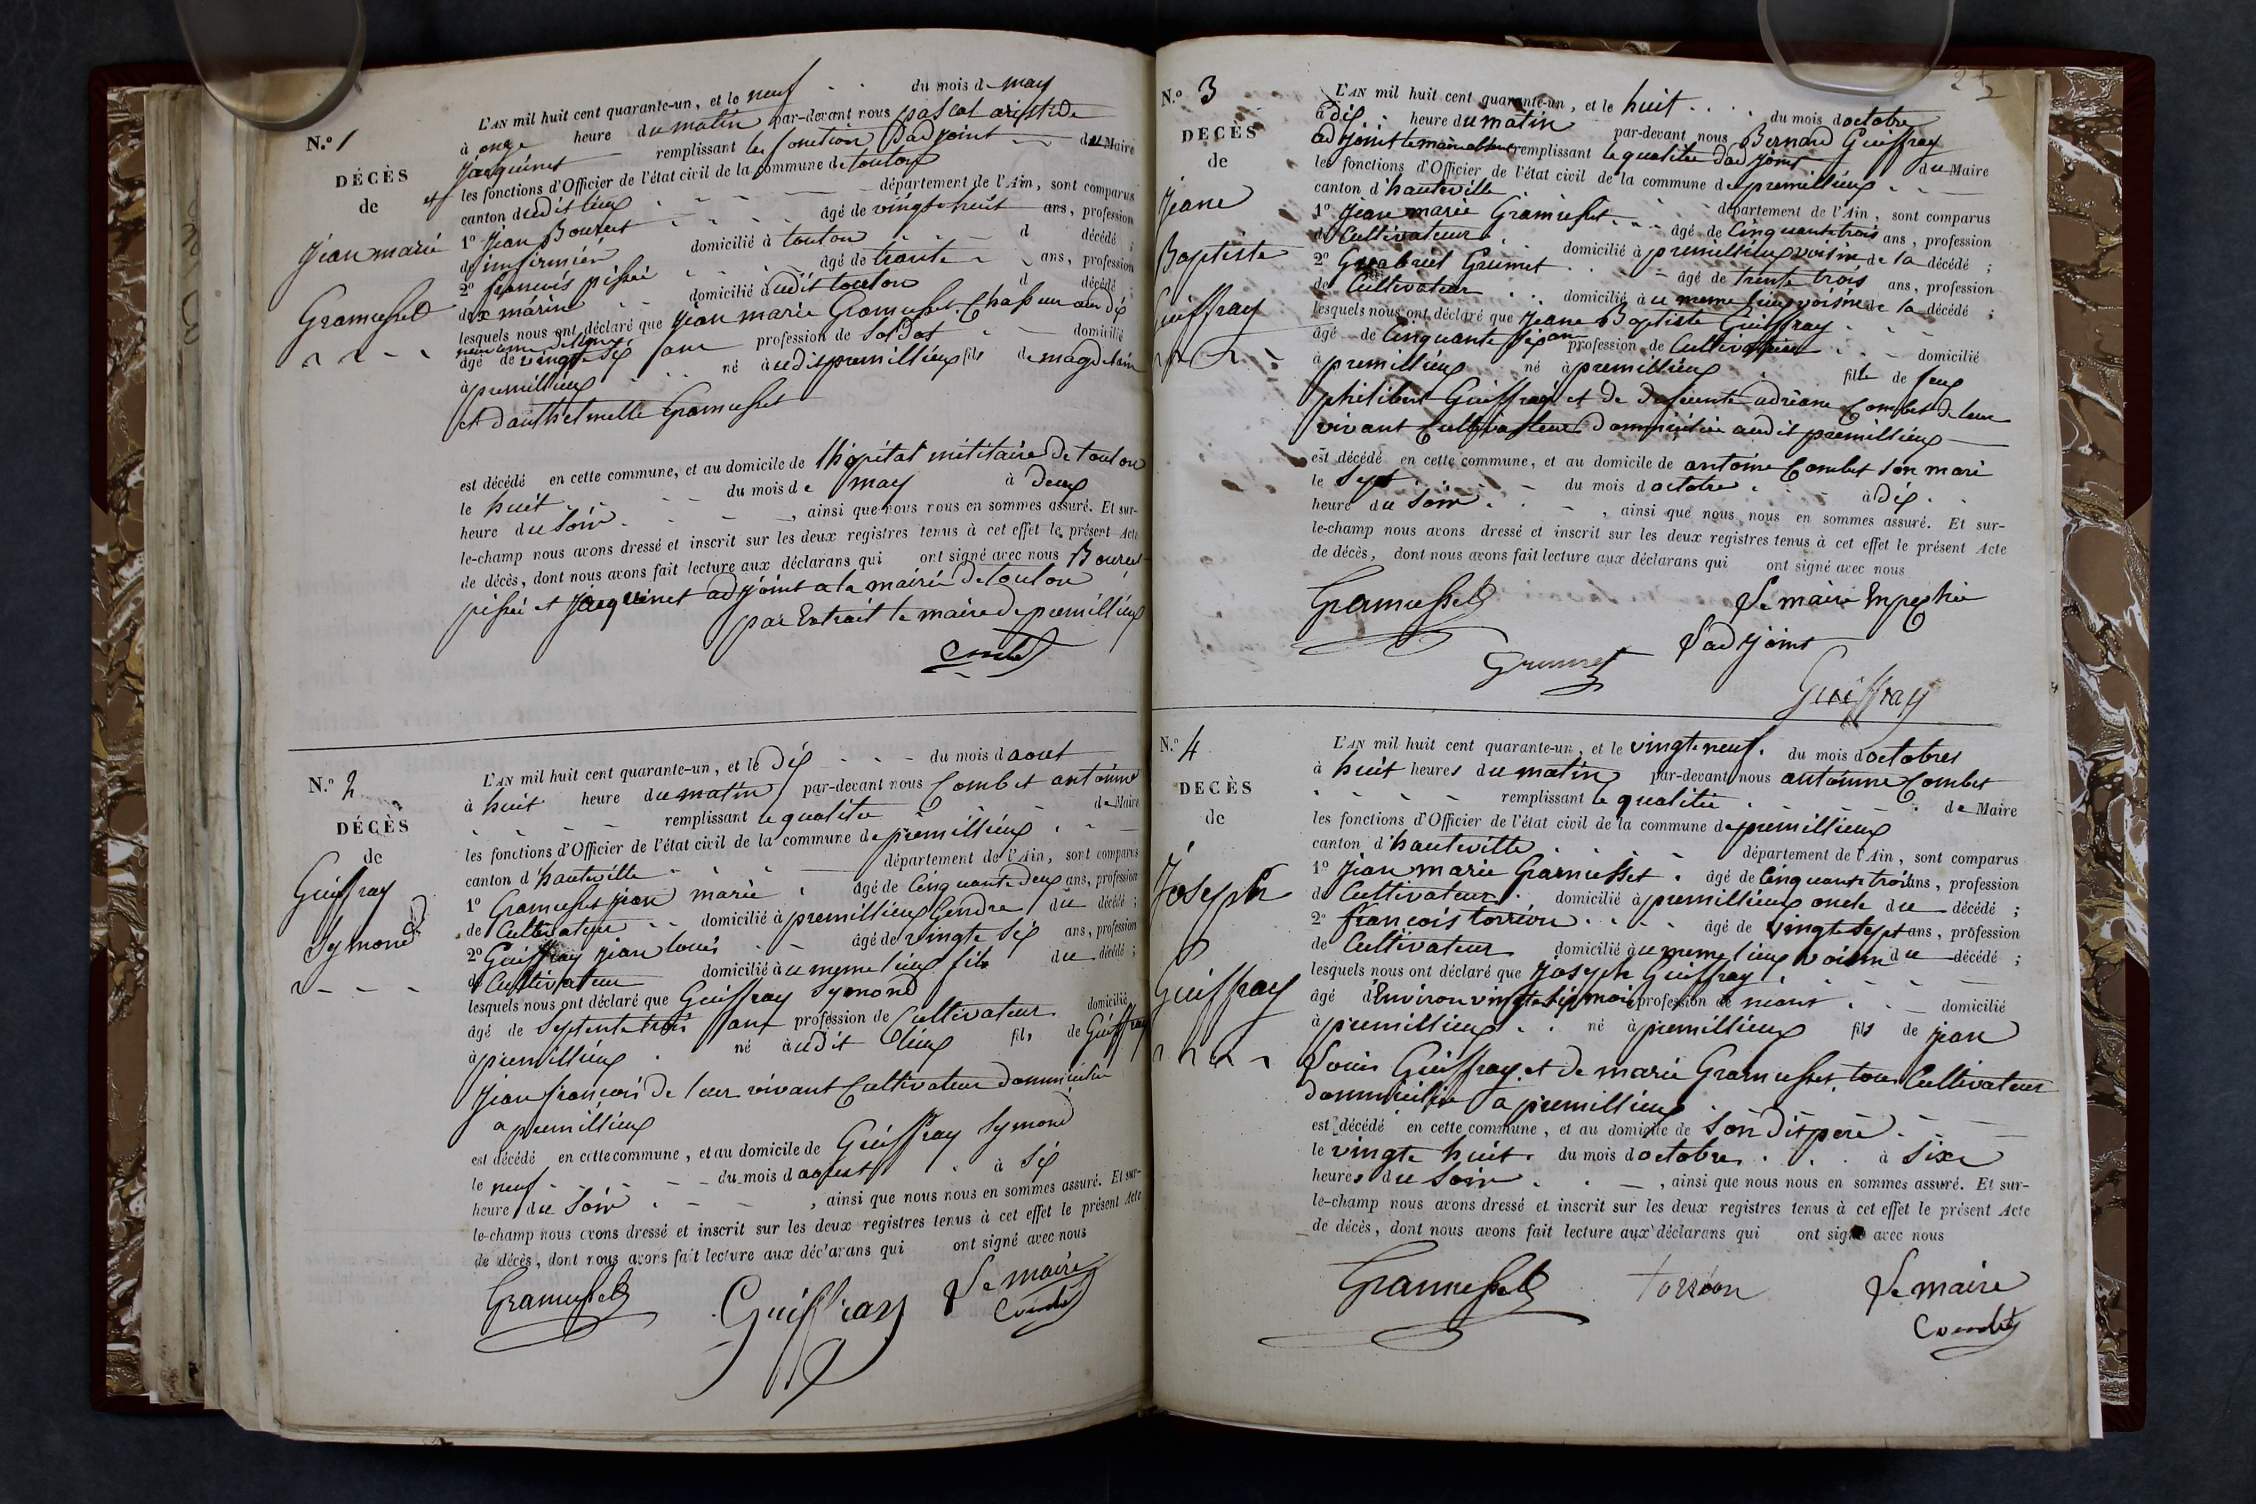 N.º 1
DÉCÈS
de
Jean marie
Gramusset
L'AN mil huit cent quarante-un, et le neuf du mois de may
à onze heure du matin par-devant nous pascal aristide
Jacquinet remplissant les fonction Dadjoint du Maire
et les fonctions d'Officier de l'état civil de la commune de toulon
canton dudit lieu département de l'Ain, sont comparus
1º Jean Bouret âgé de vingt huit ans, profession
d'infirmier domicilié à toulon d décédé ;
2º francois pissié âgé de trante ans, profession
dex marine domicilié audit toulon d décédé
lesquels nous ont déclaré que Jean marie Gramusset Chasseur au dix
âgé de vingt six ans profession de Soldat domicilié
à premillieux né audit premillieux fils de magdelain
et danthelmette Gramusset
est décédé en cette commune, et au domicile de lhopital militaire de toulon
le huit du mois de may à deux
heure du Soir , ainsi que nous nous en sommes assuré. Et sur-
le-champ nous avons dressé et inscrit sur les deux registres tenus à cet effet le présent Acte
de décès, dont nous avons fait lecture aux déclarans qui ont signé avec nous Bouret
pissié et Jacquinet adjoint a la mairie de toulon
par Extrait le maire de premillieux
Combet
N.º 2
DÉCÈS
de
Guiffray
Symond
L'AN mil huit cent quarante-un, et le dix du mois d aout
à huit heure du matin par-devant nous Combet antoinne
remplissant le qualite de Maire
les fonctions d'Officier de l'état civil de la commune de premillieux
canton d'hauteville département de l'Ain, sont comparus
1º Gramusset jean marie âgé de Cinquante deux ans, profession
de Cultivateur domicilié à premillieux Gendre du décédé ;
2º Guiffray jean louis âgé de vingte six ans, profession
de Cultivateur domicilié au meme lieux fils du décédé ;
lesquels nous ont déclaré que Guiffray Symond
âgé de Septente trois ans profession de Cultivateur domicilié
à premillieux né audit lieux fils de Guiffray
Jean francois de leur vivant Cultivateur dommicilie
a premillieux
est décédé en cette commune, et au domicile de Guiffray Symond
le neuf du mois d aoust à Six
heure du Soir , ainsi que nous nous en sommes assuré. Et sur-
le-champ nous avons dressé et inscrit sur les deux registres tenus à cet effet le présent Acte
de décès, dont nous avons fait lecture aux déclarans qui ont signé avec nous
Gramusset Guiffray Le maire
Combet
N.º 3
DÉCÈS
de
Jeane
Baptiste
Guiffray
L'AN mil huit cent quarante-un, et le huit du mois d octobre
à dix heure du matin par-devant nous Bernard Guiffray
adjoint le maire absent remplissant le qualitée dadjoint du Maire
les fonctions d'Officier de l'état civil de la commune de premillieux
canton d'hauteville département de l'Ain, sont comparus
1º Jean marie Gramusset âgé de Cinquante trois ans, profession
de Cultivateur domicilié à premillieux voisin de la décédé ;
2º Guabriel Grumet âgé de trente trois ans, profession
de Cultivateur domicilié au meme lieux voisin de la décédé ;
lesquels nous ont déclaré que Jeane Baptiste Guiffray
âgé de Cinquante six ans profession de Cultivateur domicilié
à premillieux né à premillieux fille de feux
philibert Guiffray et de defunte adriane Combet de leur
vivant Cultivateur dommicilie audit premillieux
est décédé en cette commune, et au domicile de antoine Combet Son mari
le Sept du mois d octobre à dix
heure du Soir , ainsi que nous nous en sommes assuré. Et sur-
le-champ nous avons dressé et inscrit sur les deux registres tenus à cet effet le présent Acte
de décès, dont nous avons fait lecture aux déclarans qui ont signé avec nous
Gramusset Le maire Empeché
Grumet Ladjoint
Guiffray
N.º 4
DÉCÈS
de
Joseph
Guiffray
L'AN mil huit cent quarante-un, et le vingt neuf du mois d octobres
à huit heures du matin par-devant nous antoinne Combet
remplissant le qualitée de Maire
les fonctions d'Officier de l'état civil de la commune de premillieux
canton d'hauteville département de l'Ain, sont comparus
1º Jean marie Gramusset âgé de Cinquante trois ans, profession
de Cultivateur domicilié à premillieux oncle du décédé ;
2º francois torrion âgé de vingte Sept ans, profession
de Cultivateur domicilié au meme lieux voisin du décédé ;
lesquels nous ont déclaré que Joseph Guiffray
âgé d'Environ vingte six mois profession de neant domicilié
à premillieux né à premillieux fils de jean
Louis Guiffray et de marie Gramusset tous Cultivateur
dommicilie a premillieux
est décédé en cette commune, et au domicile de Son dit pere
le vingte huit du mois d octobre à Sixe
heures du Soir , ainsi que nous nous en sommes assuré. Et sur-
le-champ nous avons dressé et inscrit sur les deux registres tenus à cet effet le présent Acte
de décès, dont nous avons fait lecture aux déclarans qui ont signé avec nous
Gramusset torrion Le maire
Combet